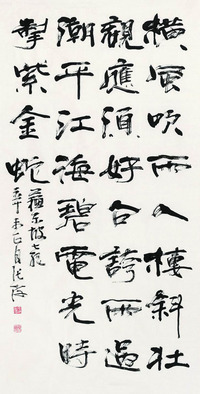 橫風吹雨入樓斜壯
觀應須好句誇雨過
潮平江海碧電光時
掣紫金蛇
蘇東坡七絕
辛未正月張海